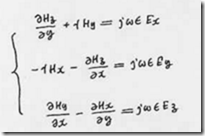 ∂Hz/∂y + γHy = jωϵEx
-γHx - ∂Hz/∂x = jωϵEy
∂Hy/∂x - ∂Hx/∂y = jωϵEz